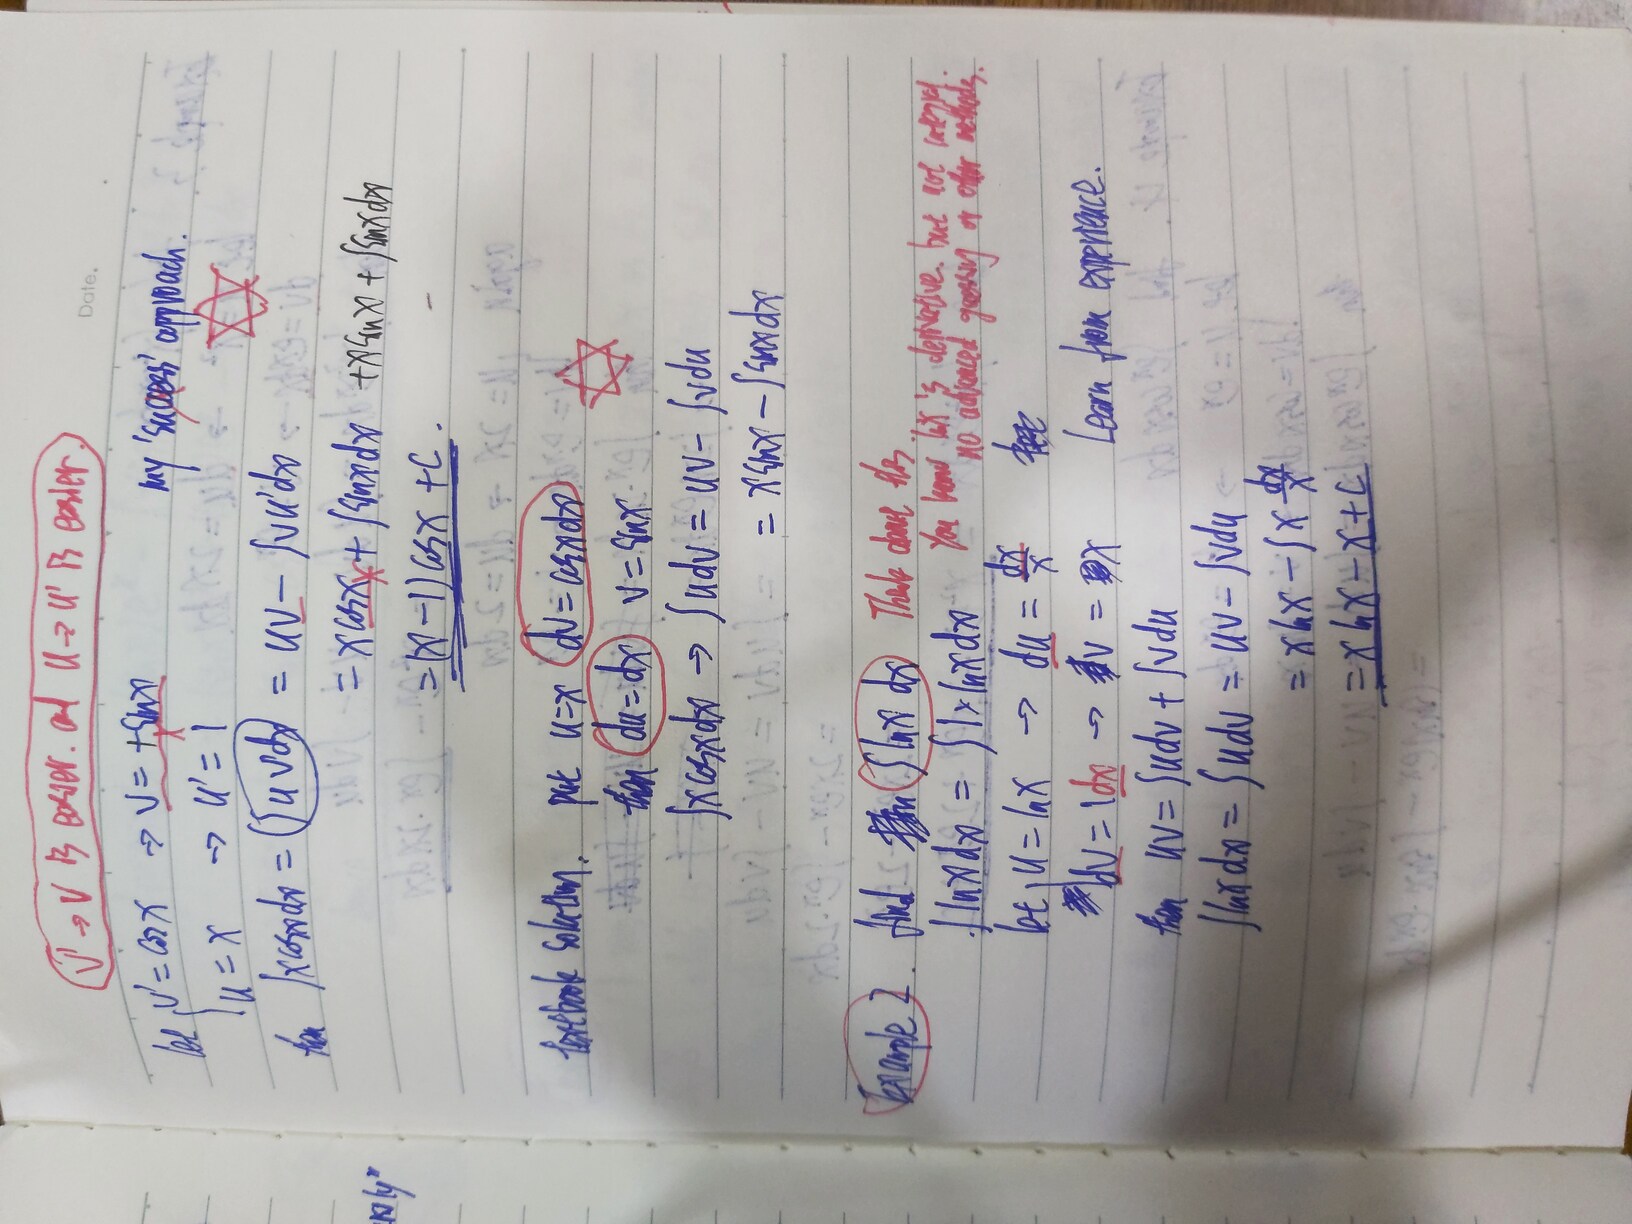 V' → V is easier. and u → u' is easier.
Date.
let V' = cosx → V = +sinx my 'success' approach.
u = x → u' = 1
then ∫xcosxdx = ∫uv'dx = uv - ∫vu'dx
= xcosx + ∫sinxdx +xsinx + ∫sinxdx
= (x-1)cosx + C.
textbook solution. put u=x dv = cosxdx
then du = dx v = sinx
∫xcosxdx → ∫udv = uv - ∫vdu
= xsinx - ∫sinxdx
Example 2. find ∫lnx dx Think about this.
You know lnx's derivative. but not integral.
no advanced guessing or other methods.
∫lnxdx = ∫1×lnxdx
let u = lnx → du = dx/x
dv = 1dx → v = x Learn from experience.
then uv = ∫udv + ∫vdu
∫lnxdx = ∫udv = uv - ∫vdu
= xlnx - ∫x dx/x
= xlnx - x + C